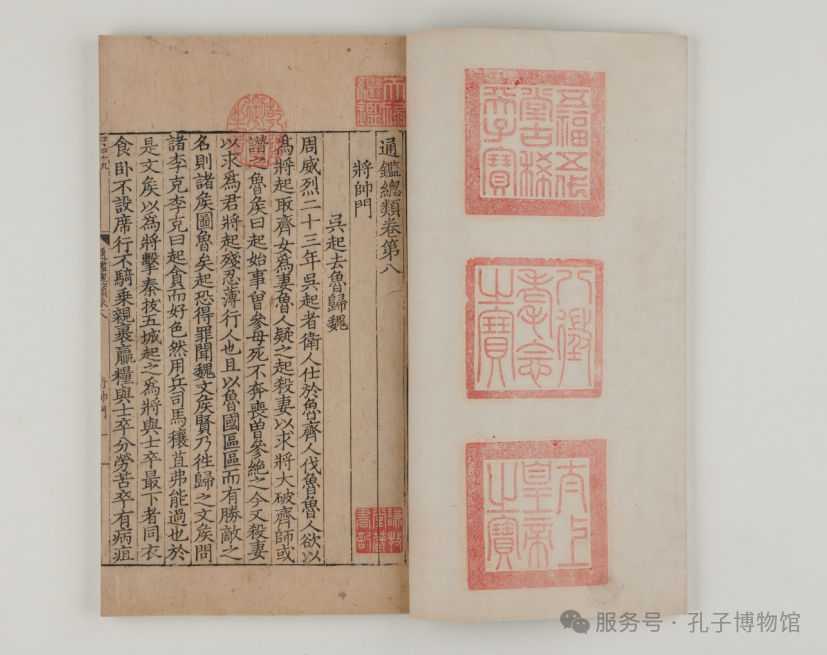 五福五代
堂古稀
天子寶
八徵
耄念
之寶
太上
皇帝
之寶
天祿
繼鑑
通鑑總類卷第八
將帥門
謙牧
堂藏
書記
吳起去魯歸魏
周威烈二十三年吳起者衛人仕於魯齊人伐魯魯人欲以
爲將起取齊女爲妻魯人疑之起殺妻以求將大破齊師或
譖之魯矦曰起始事曾參母死不奔喪曾參絶之今又殺妻
以求爲君將起殘忍薄行人也且以魯國區區而有勝敵之
名則諸矦圖魯矣起恐得罪聞魏文矦賢乃徃歸之文矦問
諸李克李克曰起貪而好色然用兵司馬穰苴弗能過也於
是文矦以爲將擊秦拔五城起之爲將與士卒最下者同衣
食臥不設席行不騎乘親裹贏糧與士卒分勞苦卒有病疽
服务号·孔子博物馆